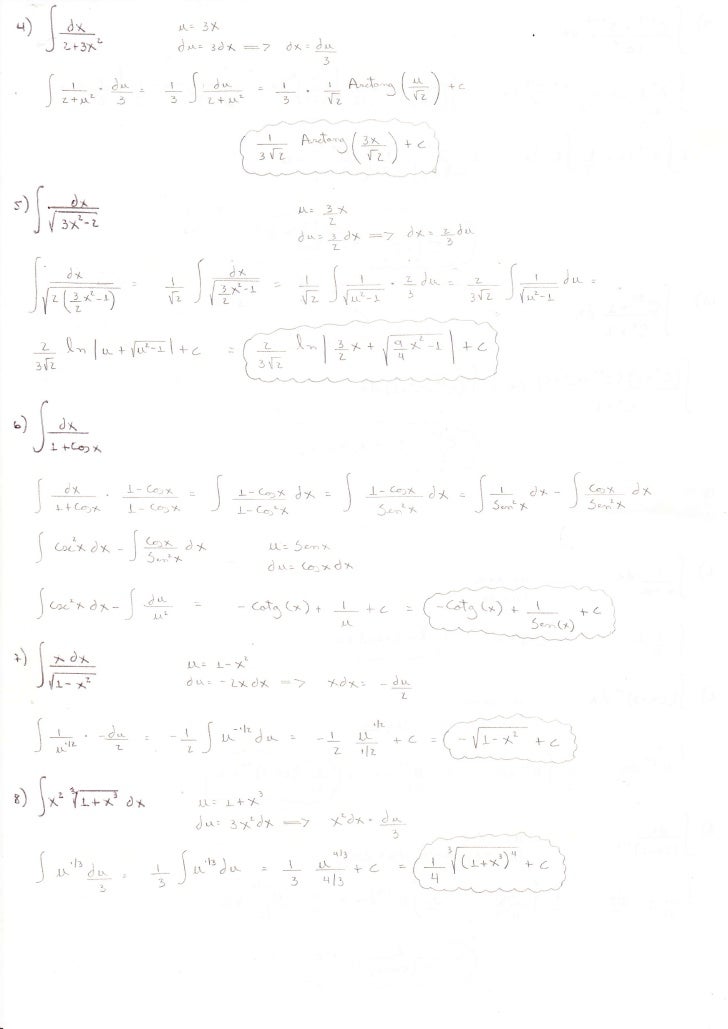 4) ∫ dx/(2+3x²)    u = 3x
du = 3dx => dx = du/3
∫ 1/(2+u²) · du/3 = 1/3 ∫ du/(2+u²) = 1/3 · 1/√2 Arctang (u/√2) + c
1/(3√2) Arctang (3x/√2) + c
5) ∫ dx/√(3x²-2)    u = 3/2 x
du = 3/2 dx => dx = 2/3 du
∫ dx/√(2(3/2 x²-1)) = 1/√2 ∫ dx/√(3/2 x²-1) = 1/√2 ∫ 1/√(u²-1) · 2/3 du = 2/(3√2) ∫ 1/√(u²-1) du =
2/(3√2) ln |u + √(u²-1)| + c = 2/(3√2) ln |3/2 x + √(9/4 x² -1)| + c
6) ∫ dx/(1+Cosx)
∫ dx/(1+Cosx) · (1-Cosx)/(1-Cosx) = ∫ (1-Cosx)/(1-Cos²x) dx = ∫ (1-Cosx)/Sen²x dx = ∫ 1/Sen²x dx - ∫ Cosx/Sen²x dx
∫ csc²x dx - ∫ Cosx/Sen²x dx    u = Senx
du = Cosx dx
∫ csc²x dx - ∫ du/u² = - Cotg(x) + 1/u + c = -Cotg(x) + 1/Sen(x) + c
7) ∫ x dx/√(1-x²)    u = 1-x²
du = -2x dx => xdx = - du/2
∫ 1/u^(1/2) · -du/2 = -1/2 ∫ u^(-1/2) du = -1/2 u^(1/2)/(1/2) + c = -√(1-x²) + c
8) ∫ x² ³√(1+x³) dx    u = 1+x³
du = 3x²dx => x²dx = du/3
∫ u^(1/3) du/3 = 1/3 ∫ u^(1/3) du = 1/3 u^(4/3)/(4/3) + c = 1/4 ³√((1+x³)⁴) + c